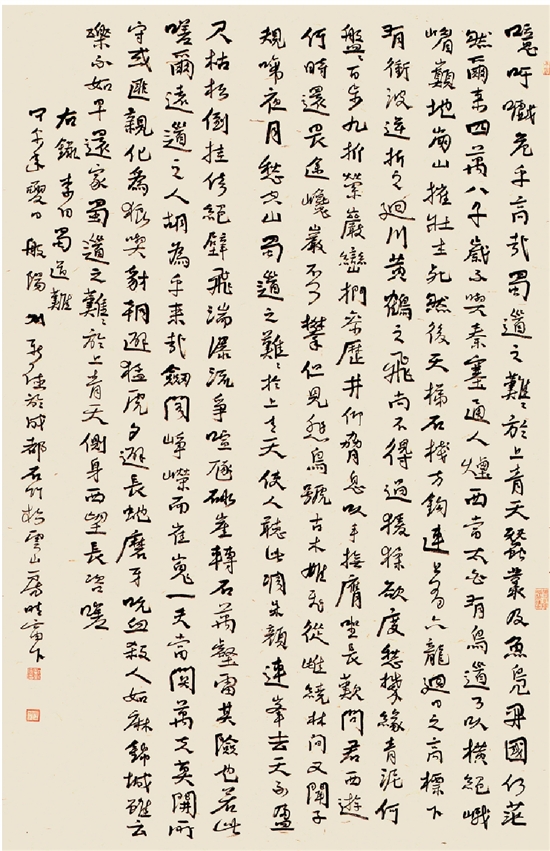 噫吁嚱危乎高哉蜀道之難〻於上青天蠶叢及魚鳧開國何茫
然爾來四萬八千歲不與秦塞通人煙西當太白有鳥道可以橫絕峨
嵋巔地崩山摧壯士死然後天梯石棧方鉤連上有六龍迴日之高標下
有衝波逆折之迴川黃鶴之飛尚不得過猨猱欲度愁攀緣青泥何
盤〻百步九折縈巖巒捫參歷井仰脅息以手撫膺坐長歎問君西遊
何時還畏途巉巖不可攀但見悲鳥號古木雄飛從雌繞林間又聞子
規啼夜月愁空山蜀道之難〻於上青天使人聽此凋朱顏連峯去天不盈
尺枯松倒挂倚絕壁飛湍瀑流爭喧豗砅崖轉石萬壑雷其險也若此
嗟爾遠道之人胡為乎來哉劍閣崢嶸而崔嵬一夫當關萬夫莫開所
守或匪親化為狼與豺朝避猛虎夕避長蛇磨牙吮血殺人如麻錦城雖云
樂不如早還家蜀道之難〻於上青天側身西望長咨嗟
右錄李白蜀道難
甲午年夏日般陽 於成都石竹 雲山